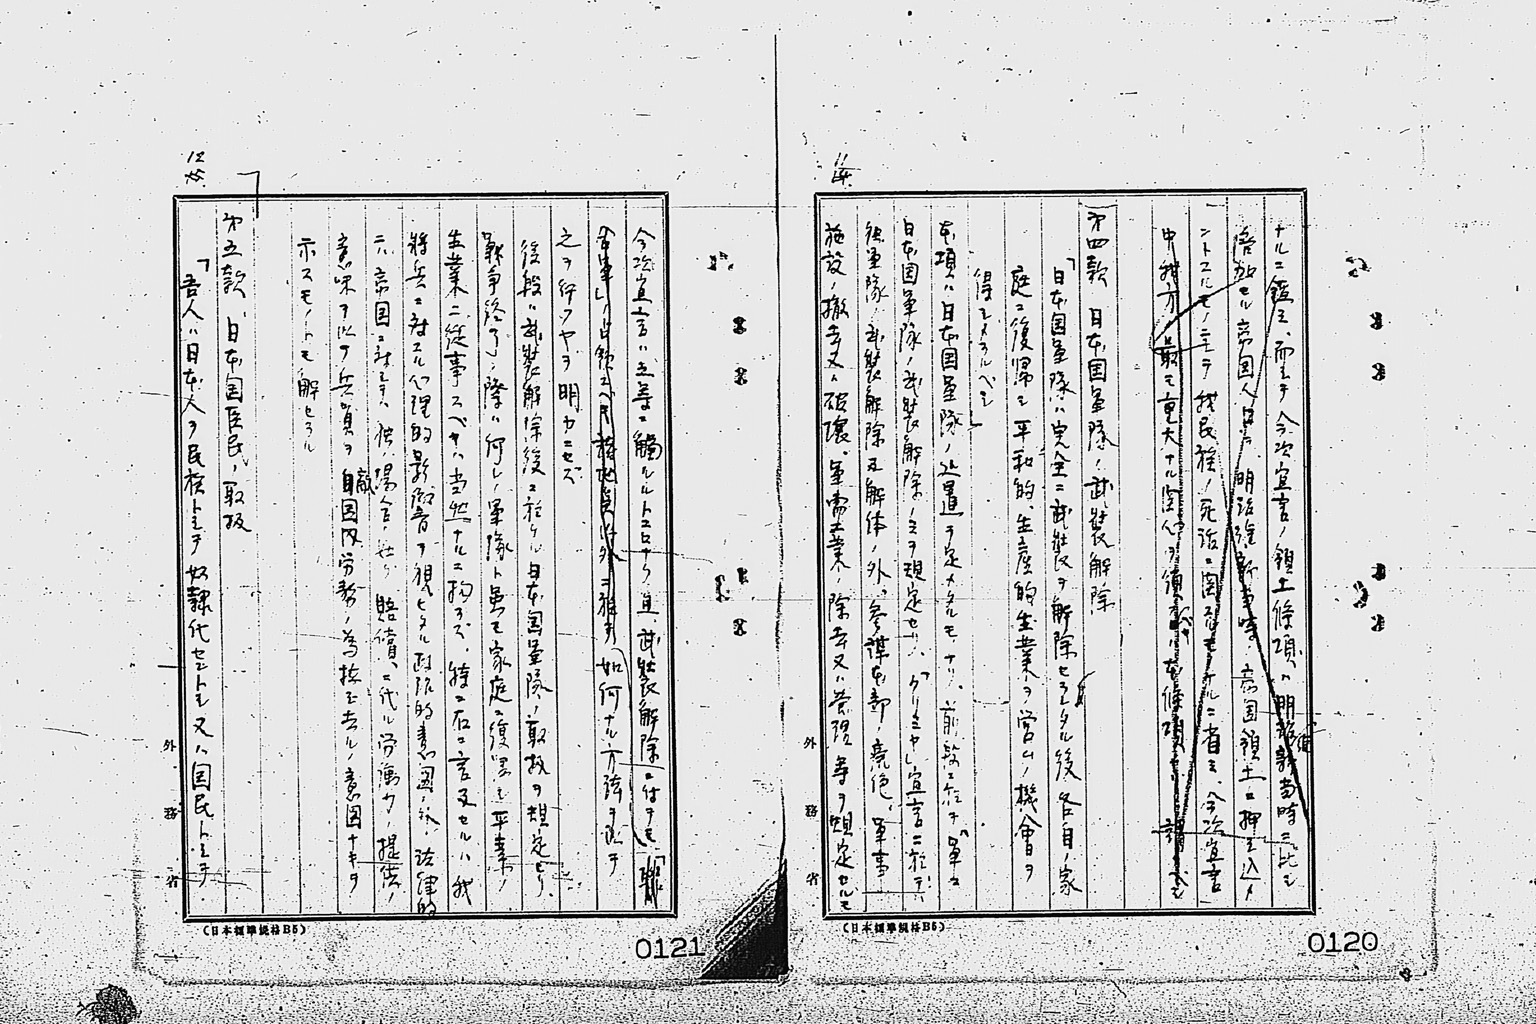 ナルニ鑑ミ、而シテ今次宣言ノ領土條項ハ明治維新当時ニ比シ
倍加セル帝国人口ヲ明治維新当時ノ帝国領土ニ押シ込メ
ントスルモノニシテ我民族ノ死活ニ関スルモノナルニ省ミ、今次宣言
中我方ノ最モ重大ナル関心ヲ
第四款 日本国軍隊ノ武装解除
「日本国軍隊ハ完全ニ武装ヲ解除セラレタル後各自ノ家
庭ニ復帰シ平和的、生産的生業ヲ営ムノ機會ヲ
得シメラルベシ」
本項ハ日本国軍隊ノ処置ヲ定メタルモノナリ、前段ニ於テ「軍ハ
日本国軍隊ノ武装解除ノミヲ規定セリ、「クリミヤ」宣言ニ於テハ
独軍隊ノ武装解除及解体ノ外、参謀本部ノ廃絶、軍事
施設ノ撤去又ハ破壊、軍需工業ノ除去又ハ管理等ヲ規定セルモ
11
0120
今次宣言ハ之等ニ觸ルルトコロナク且武装解除ニ付テモ「聯
合軍」ノ占領スベキ諸地点以外ニ於テ如何ナル方法ヲ以テ
之ヲ行フヤヲ明カニセズ
後段ハ武装解除後ニ於ケル日本国軍隊ノ取扱ヲ規定セリ、
戦争終了ノ際ハ何レノ軍隊ト雖モ家庭ニ復帰シ平和ノ
生業ニ従事スベキハ当然ナルニ拘ラズ、特ニ右ニ言及セルハ我
将兵ニ対スル心理的影響ヲ狙ヒタル政治的意図ノ外、法律的
ニハ帝国ニ対シテハ独ノ場合ト異リ賠償ニ代ル労働力ノ提供ノ
意味ヲ以テ兵員ヲ敵国内労務ノ為拉シ去ルノ意図ナキヲ
示スモノトモ解セラル
第五款、日本国臣民ノ取扱
「吾人ハ日本人ヲ民族トシテ奴隷化セントシ又ハ国民トシテ
12
0121
外務省
外務省
(日本標準規格B5)
(日本標準規格B5)